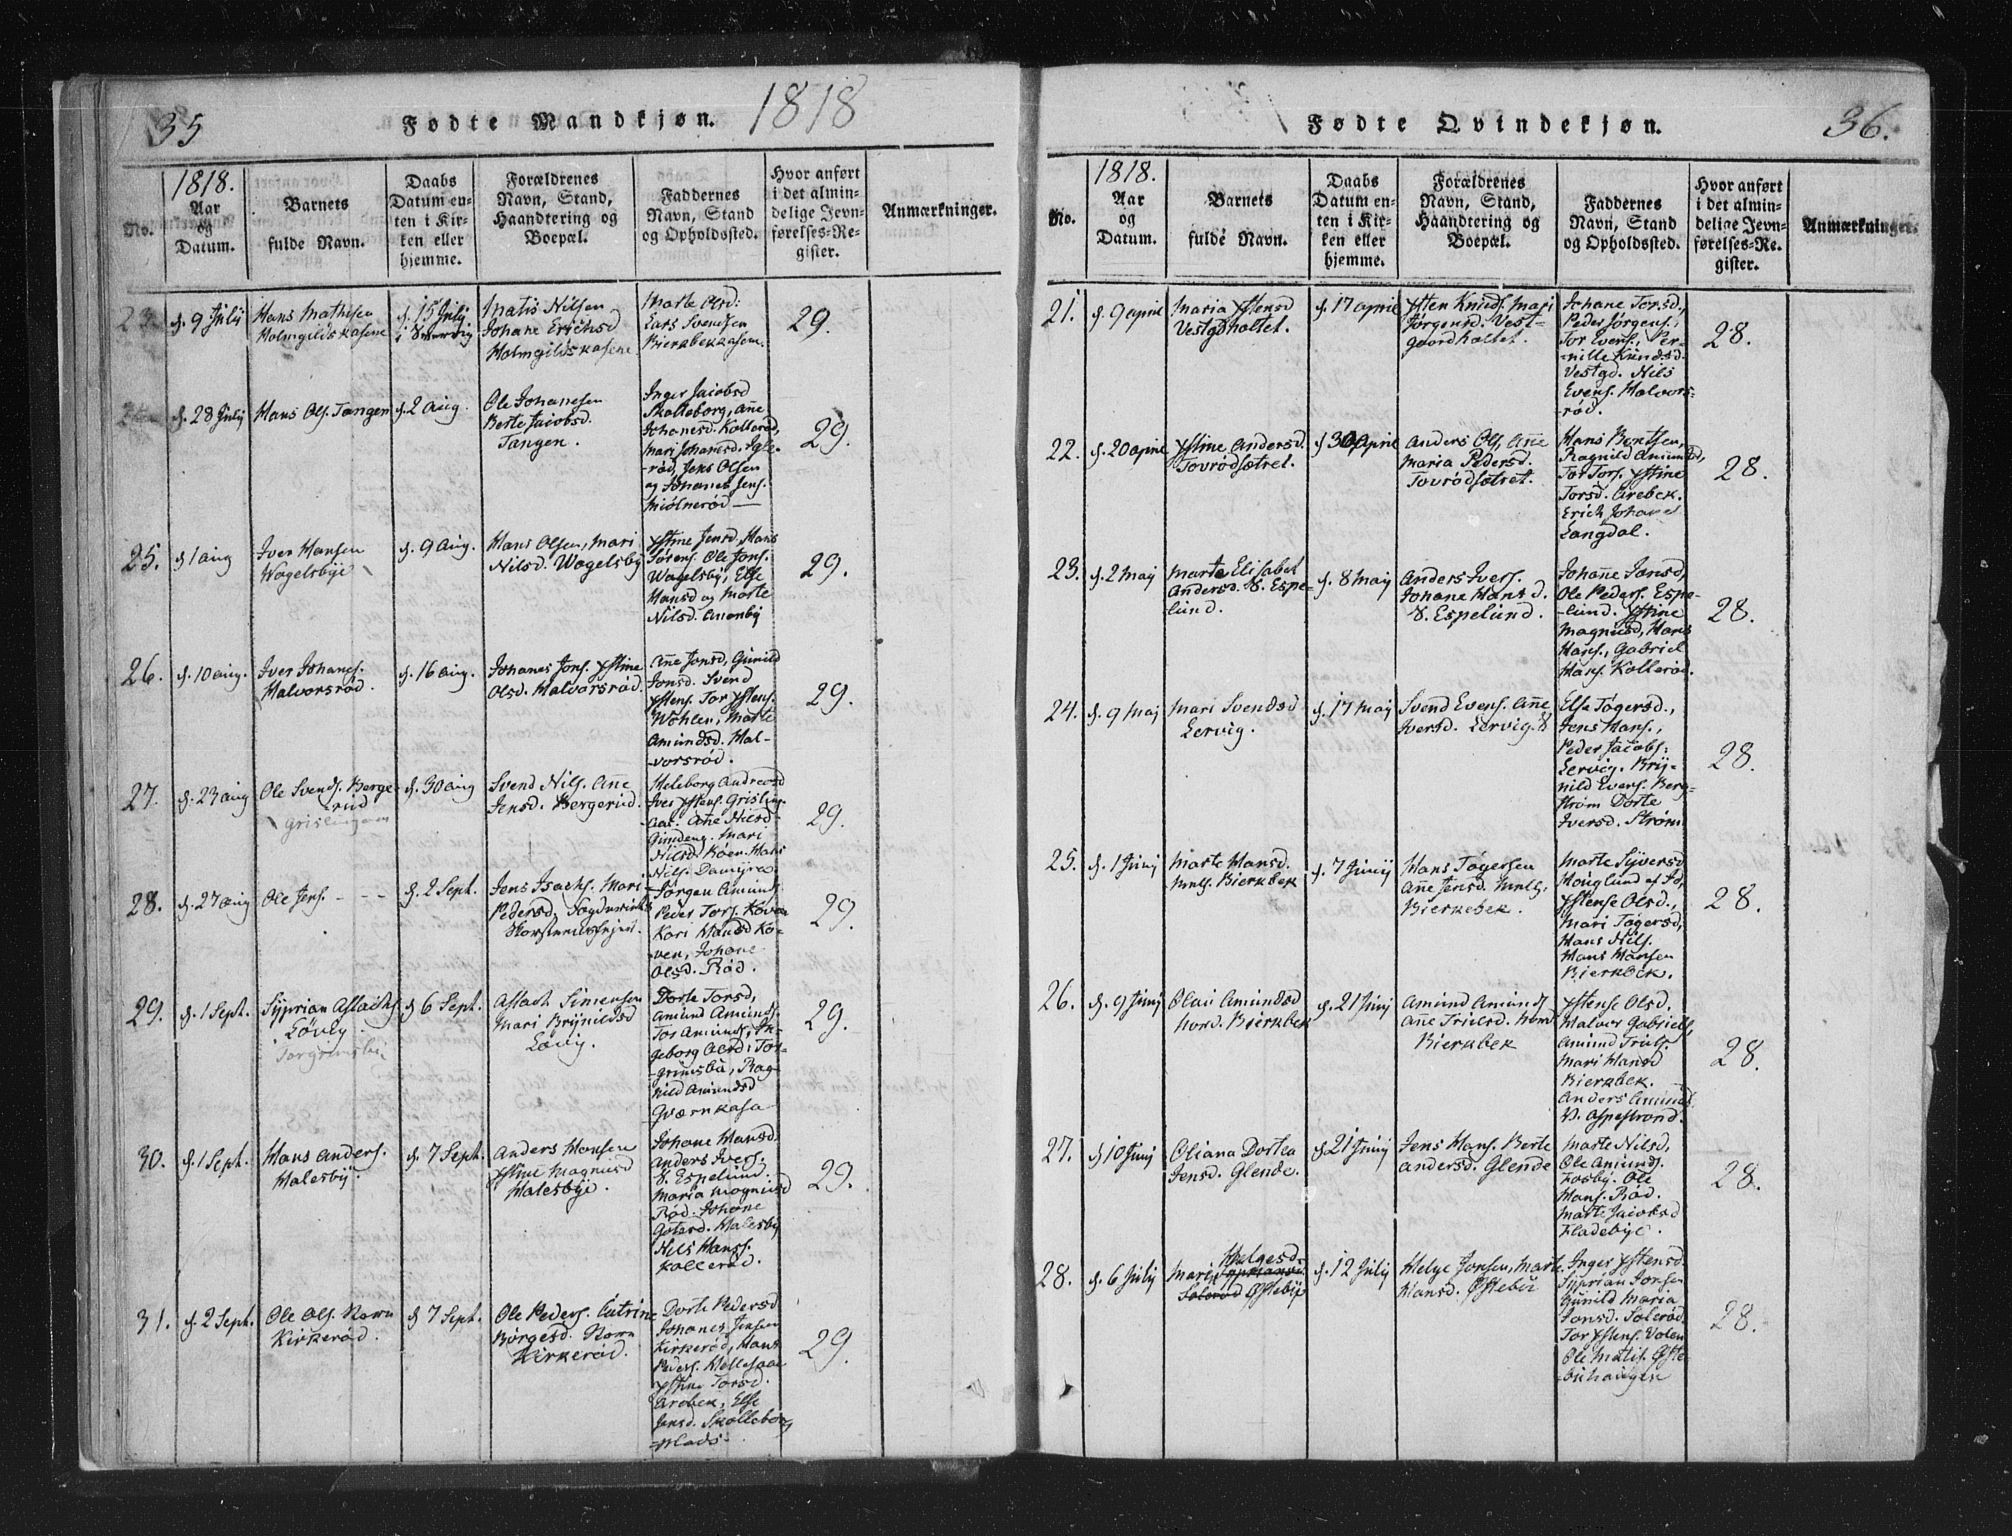 35
Fødte Mandkjøn.
1818
No.
1818.
Aar
og
Datum.
Barnets
fulde Navn.
Daabs
Datum en-
ten i Kir-
ken eller
hjemme.
Forældrenes
Navn, Stand,
Haandtering og
Boepæl.
Faddernes
Navn, Stand
og Opholdssted.
Hvor anført
i det almin-
delige Jevn-
førelses-Re-
gister.
Anmærkninger.
23.
d. 9 July
Hans Mathisen
Holmgildskasene
d. 15 July
Matis Nilsen
Johane Erichsd
Holmgildskasene
Marte Olsd:
Lars Svendsen
Bierkbekkasen
29.
d. 28 July
Hans Ols. Tangen
d. 2 Aug.
Ole Johanesen
Berte Jacobsd.
Tangen.
Inger Jacobsd
Skalleborg, Ane
Johanesd. Kollerød,
Mari Johanesd. Igle-
rød, Jens Olsen
og Johanes Jens.
Miølnerød
29.
25.
d 1 Aug
Iver Hansen
Wagelsbye
d. 9 Aug.
Hans Olsen, Mari
Nilsd. Wagelsby
Ystine Jensd, Hans
Sørens. Ole Jons.
Wagelsby, Else
Hansd og Marte
Nilsd.
29.
26.
d. 10 Aug.
Iver Johanes.
Halvorsrød.
d. 16 Aug.
Johanes Jons. Ystine
Olsd. Halvorsrød.
Ane Jonsd, Gunild
Jonsd. Svend
Ystens. Tor Ystens.
Wohlen, Marte
Amundsd. Hal-
vorsrød.
29.
27.
d. 23 Aug
Ole Svends. Berge-
rud
d. 30 Aug
Svend Nils. Ane
Jensd. Bergerud.
Heleborg Andreasd
Iver Ystens.
Ane Nilsd
Mari
Nilsd. Hans
Nils. Damyra
29.
28.
d. 27 Aug
Ole Jens. - - -
d. 2 Sept.
Jens Isachs. Mari
Pedersd.
Jørgen Amunds.
Peder Tors. Koven
Kari Hansd Ko-
ven, Johane
Olsd. Rød.
29.
29.
d. 1 Sept.
Syprian Aslachs
Løvby
Torgrimsbu
d 6 Sept.
Aslach Simensen
Mari Brynildsd
Løvby.
Dorte Torsd,
Amund Amunds.
Tor Amunds, In-
geborg Olsd: Tor-
grimsbu, Rag-
nild Amundsd
Qværnkasa
29.
30.
d. 1 Sept.
Hans Anders.
Halesby.
d 7 Sept.
Anders Hansen
Ystine Magnusd
Halesbye.
Johane Hansd.
Anders Ivers.
S. Espelund.
Maria Magnusd
Rød. Johane
Halesby
Nils Hans.
Kollerød.
29.
31.
d. 2 Sept.
Ole Ols. Norn
Kirkerød.
d 7 Sept.
Ole Peders. Catrine
Børgesd. Norn
Kirkerød.
Dorte Pedersd
Johanes Jensen
Kirkerød, Hans
Peders.
Ystine Torsd.
Arebek, Else
Jensd. Skalleborg
-plads.
29.
Fødte Qvindekjøn.
36.
No.
1818.
Aar
og
Datum.
Barnets
fulde Navn.
Daabs
Datum en-
ten i Kir-
ken eller
hjemme.
Forældrenes
Navn, Stand,
Haandtering og
Boepæl.
Faddernes
Navn, Stand
og Opholdssted.
Hvor anført
i det almin-
delige Jevn-
førelses-Re-
gister.
Anmærkninger.
21.
d. 9 april
Maria Ystensd
Vestgdholtet.
d. 17 april
Ysten Knuds. Mari
Jørgensd. Vest-
gaardholtet.
Johane Torsd,
Peder Jørgens.,
Tor Evens., Per-
nille Knudsd.
Vestgd. Nils
Evens. Halvors-
rød.
28.
22.
d. 20 april
Ystine Andersd.
Tovrødsætret.
d 30 april
Anders Ols, Ane
Maria Pedersd.
Tovrødsætret.
Hans Bentsen,
Ragnild Amundsd,
Tor Tors. Ystine
Torsd. Arebek.
Erich Johanes
Langdal.
28.
23.
d. 2 Maj
Marte Elisabet
Andersd. S. Espe-
lund.
d. 8 Maj
Anders Ivers.
Johane Hansd.
S. Espelund.
Johane Jonsd,
Ole Peders. Espe-
-lund. Ystine
Magnusd, Hans
Hans., Gabriel
Hans. Kollerød.
28.
24.
d. 9 Maj
Mari Svendsd
Lervig.
d. 17 Maj
Svend Evens. Ane
Iversd. Lervig.
Else Tøgersd.,
Jens Hans.,
Peder Jacobs:
Lervig. Bry-
nild Evens. Berg-
strøm Dorte
Iversd. Strøm
28.
25.
d. 1 Junij
Marte Hansd.
Mnls. Bierkbek
d. 7 Junij
Hans Tøgersen
Ane Jensd. Mnls.
Bierkebek.
Marte Syversd
Houglund af Id,
Ystense Olsd.,
Mari Tøgersd,
Hans Nils.
Hans Hansen
Bierkbek.
28.
26.
d. 9 Junij
Olau Amundsd
Nord. Bierkbek
d. 21 Junij
Amund Amunds
Ane Trulsd. Nord
Bierkbek
Ystense Olsd.
Halvor Gabriels,
Amund Truls.
Mari Hansd
Bierkbek.
Anders Amunds
V. Aspestrand.
28.
27.
d 10 Junij
Oliana Dortea
Jensd. Glende.
d 21 Junij
Jens Hans. Berte
Andersd. Glende
Marte Nilsd,
Ole Amunds.
Fosby. Ole
Hans. Rød.
Marte Jacobsd
Fladebye.
28.
28.
d. 6 July
Mari Helgesd.
Solerød Østebye
d. 12 July
Helge Jonsen, Marte
Hansd. Østebu
Inger Ystensd.
Syprian Jonsen
Gunild Maria
Jonsd. Solerød.
Tor Ystens. Volen
Ole Matis. Øste-
buhaugen
28.